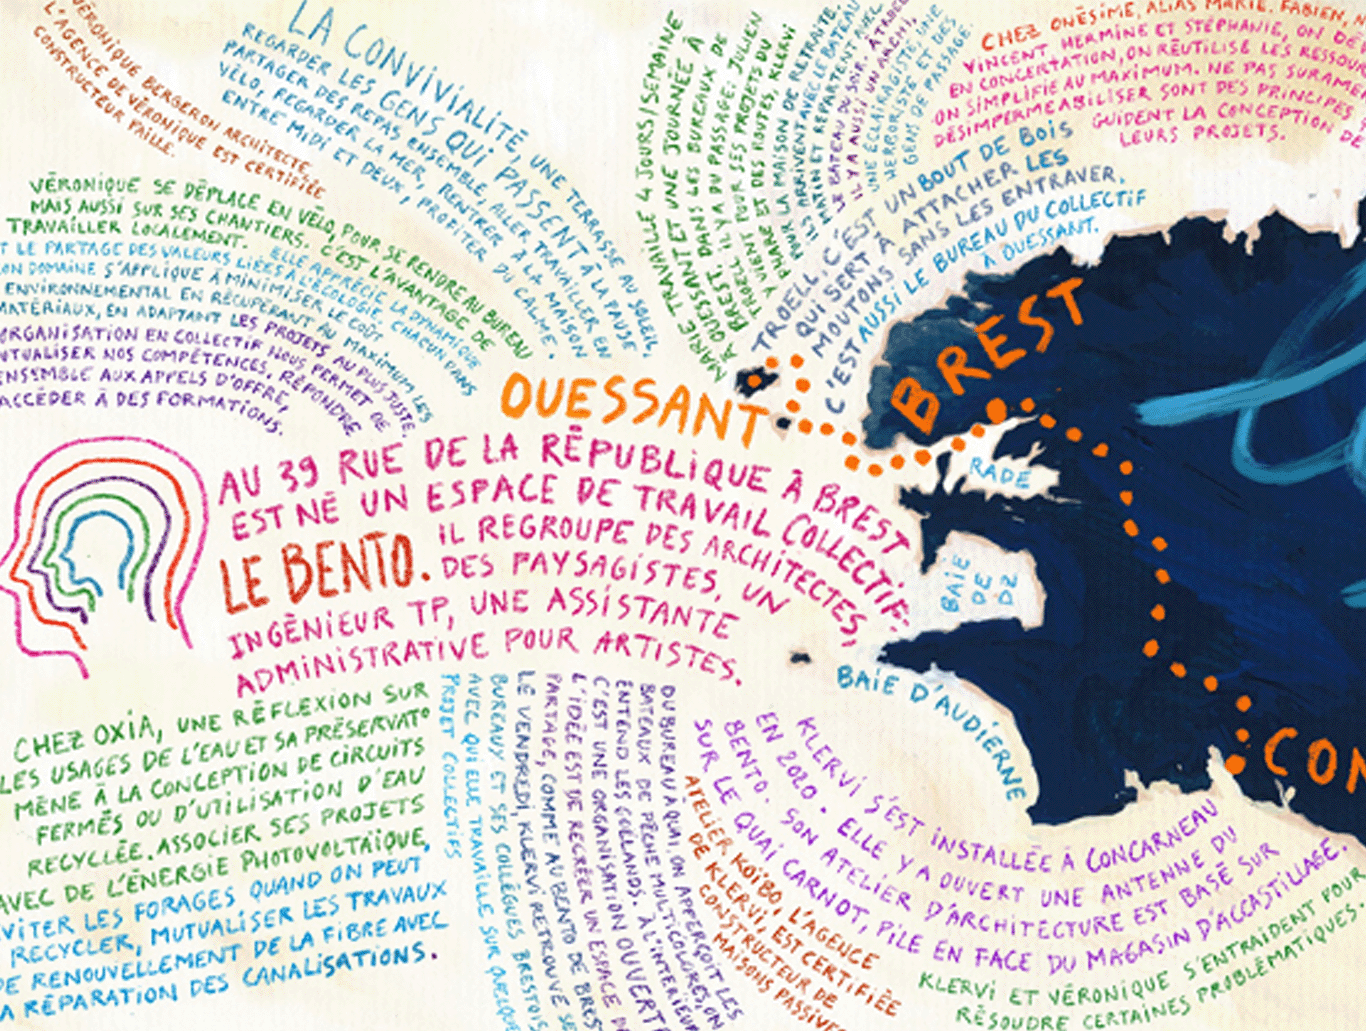 VÉRONIQUE BERGERON ARCHITECTE,
L'AGENCE DE VÉRONIQUE EST CERTIFIÉE
CONSTRUCTEUR PAILLE.
LA CONVIVIALITÉ, UNE TERRASSE AU SOLEIL,
REGARDER LES GENS QUI PASSENT À LA PAUSE,
PARTAGER DES REPAS ENSEMBLE, ALLER TRAVAILLER EN
VÉLO, REGARDER LA MER, RENTRER À LA MAISON
ENTRE MIDI ET DEUX, PROFITER DU CALME.
VÉRONIQUE SE DÉPLACE EN VÉLO, POUR SE RENDRE AU BUREAU
MAIS AUSSI SUR SES CHANTIERS. C'EST L'AVANTAGE DE
TRAVAILLER LOCALEMENT. ELLE APPRÉCIE LA DYNAMIQUE
ET LE PARTAGE DES VALEURS LIÉES À L'ÉCOLOGIE. CHACUN DANS
SON DOMAINE S'APPLIQUE À MINIMISER LE COÛT
ENVIRONNEMENTAL EN RÉCUPÉRANT AU MAXIMUM LES
MATÉRIAUX, EN ADAPTANT LES PROJETS AU PLUS JUSTE.
ORGANISATION EN COLLECTIF NOUS PERMET DE
MUTUALISER NOS COMPÉTENCES, RÉPONDRE
ENSEMBLE AUX APPELS D'OFFRE,
ACCÉDER À DES FORMATIONS.
MARIE TRAVAILLE 4 JOURS/SEMAINE
À OUESSANT ET UNE JOURNÉE À
BREST, DANS LES BUREAUX DE
TROELL. IL Y A DU PASSAGE: JULIEN
Y VIENT POUR SES PROJETS DU
PHARE ET DES HOUTES, KLERVI
POUR LA MAISON DE RETRAITE.
ILS ARRIVENT AVEC LE BATEAU
MATIN ET REPARTENT AVEC
LE BATEAU DU SOIR. À TROELL
IL Y A AUSSI UN ARCHI,
UNE ÉCLAIRAGISTE, UNE
HERBORISTE ET DES
GENS DE PASSAGE.
CHEZ ONÉSIME, ALIAS MARIE, FABIEN,
VINCENT, HERMINE ET STÉPHANIE, ON
EN CONCERTATION, ON RÉUTILISE LES
ON SIMPLIFIE AU MAXIMUM. NE PAS
DÉSIMPERMÉABILISER SONT DES PRINCIPES
GUIDENT LA CONCEPTION DE
LEURS PROJETS.
TROELL, C'EST UN BOUT DE BOIS
QUI SERT À ATTACHER LES
MOUTONS SANS LES ENTRAVER.
C'EST AUSSI LE BUREAU DU COLLECTIF
À OUESSANT.
OUESSANT
BREST
RADE
BAIE
DE
DZ
BAIE D'AUDIERNE
CON
AU 39 RUE DE LA RÉPUBLIQUE À BREST
EST NÉ UN ESPACE DE TRAVAIL COLLECTIF:
LE BENTO. IL REGROUPE DES ARCHITECTES,
DES PAYSAGISTES, UN
INGÉNIEUR TP, UNE ASSISTANTE
ADMINISTRATIVE POUR ARTISTES.
CHEZ OXIA, UNE RÉFLEXION SUR
LES USAGES DE L'EAU ET SA PRÉSERVAT°
MÈNE À LA CONCEPTION DE CIRCUITS
FERMÉS OU D'UTILISATION D'EAU
RECYCLÉE. ASSOCIER SES PROJETS
AVEC DE L'ÉNERGIE PHOTOVOLTAÏQUE,
ÉVITER LES FORAGES QUAND ON PEUT
RECYCLER, MUTUALISER LES TRAVAUX
DE RENOUVELLEMENT DE LA FIBRE AVEC
LA RÉPARATION DES CANALISATIONS.
DU BUREAU À QUAI, ON APPERÇOIT LES
BATEAUX DE PÊCHE MULTICOLORES, ON
ENTEND LES GOÉLANDS. À L'INTÉRIEUR
C'EST UNE ORGANISATION OUVERTE
L'IDÉE EST DE RECRÉER UN ESPACE DE
PARTAGÉ, COMME AU BENTO DE BREST
LE VENDREDI, KLERVI RETROUVE SES
BUREAUX ET SES COLLÈGUES BRESTOIS
AVEC QUI ELLE TRAVAILLE SUR QUELQUES
PROJET COLLECTIFS
KLERVI S'EST INSTALLÉE À CONCARNEAU
EN 2020. ELLE Y A OUVERT UNE ANTENNE DU
BENTO. SON ATELIER D'ARCHITECTURE EST BASÉ SUR
SUR LE QUAI CARNOT, PILE EN FACE DU MAGASIN D'ACCASTILLAGE.
ATELIER KOÏBO, L'AGENCE
DE KLERVI, EST CERTIFIÉE
CONSTRUCTEUR DE
MAISONS PASSIVES
KLERVI ET VÉRONIQUE S'ENTRAIDENT POUR
RÉSOUDRE CERTAINES PROBLÉMATIQUES